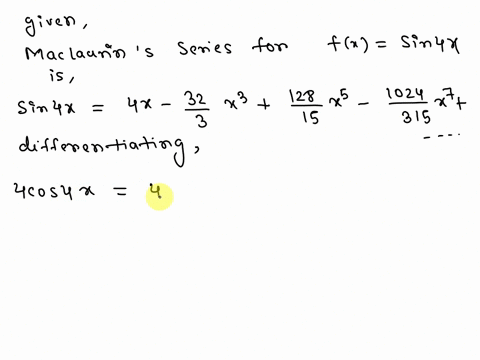 given,
Maclaurin's Series for f(x) = Sin4x
is,
Sin4x = 4x - 32/3 x³ + 128/15 x⁵ - 1024/315 x⁷ + ....
differentiating,
4cos4x = 4